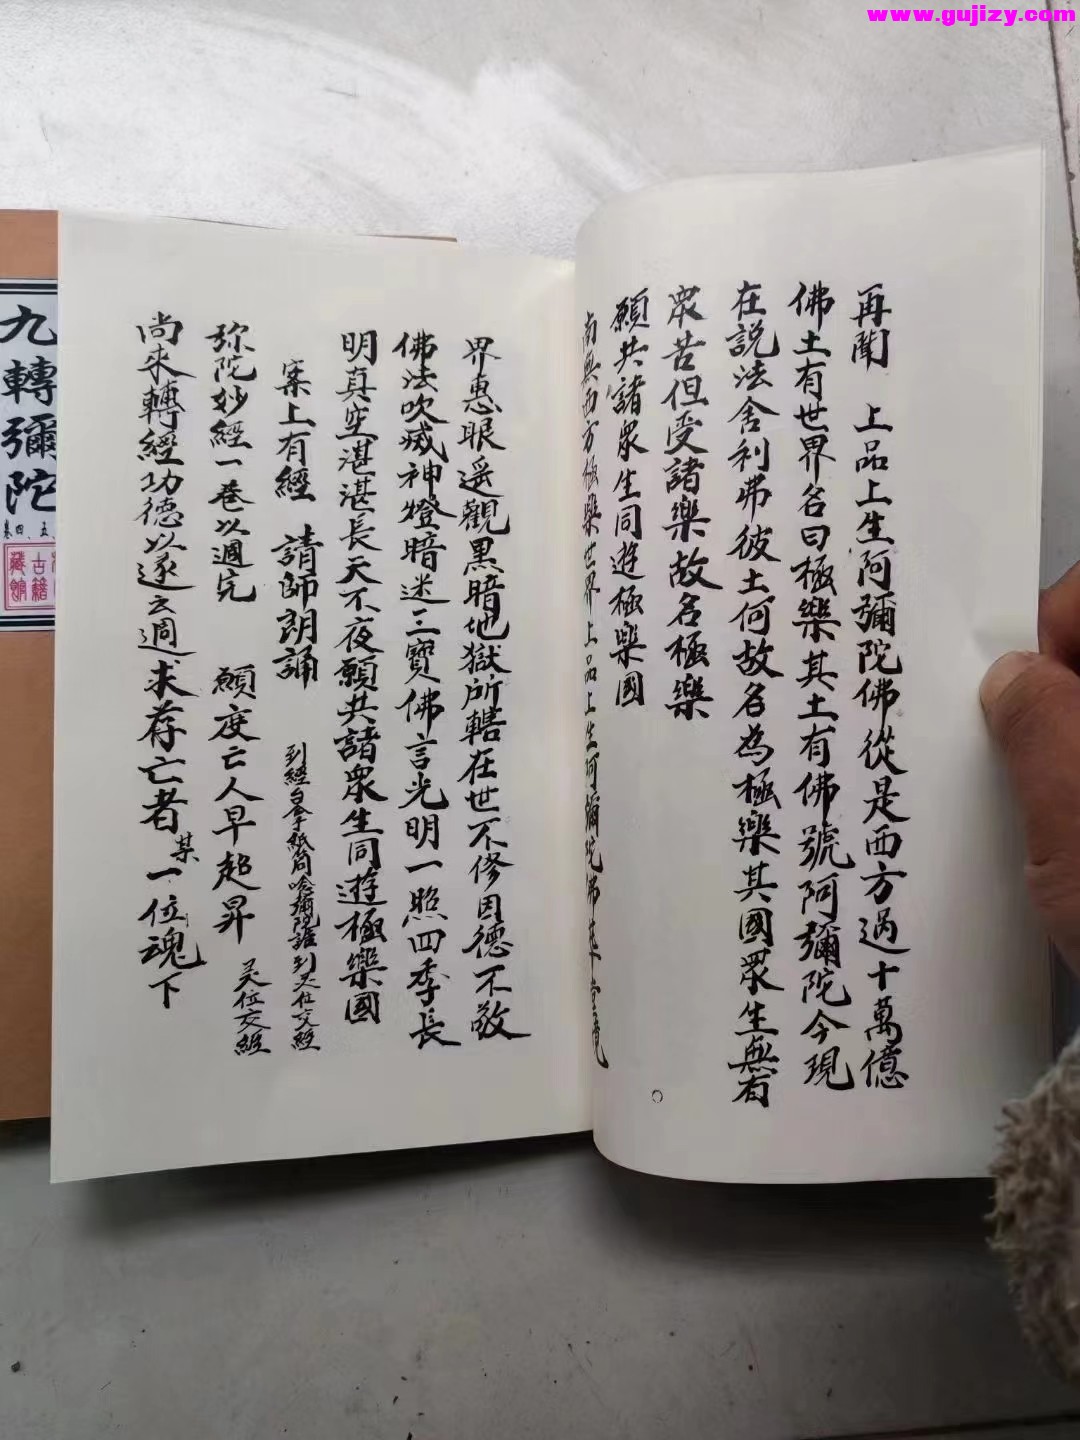 www.gujizy.com
再聞 上品上生阿彌陀佛從是西方過十萬億
佛土有世界名曰極樂其土有佛號阿彌陀今現
在説法舍利弗彼土何故名為極樂其國衆生無有
衆苦但受諸樂故名極樂
願共諸衆生同遊極樂國
南無西方極樂世界上品上生阿彌陀佛
界惠眼遥觀黒暗地獄所轄在世不修因德不敬
佛法吹威神燈暗迷三寳佛言光明一照四季長
明真空湛湛長天不夜願共諸衆生同遊極樂國
案上有經 請師朗誦
到經白拿紙筒唸彌陀誰到灵位交經
灵位交經
弥陀妙經一卷以週完 願度亡人早超昇
尚来轉經功德以遂云週求荐亡者某一位魂下
九轉彌陀
卷四、五
古籍
藏館